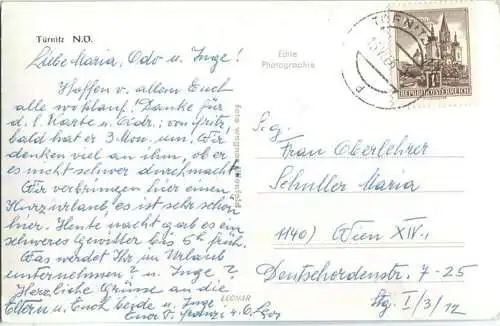 Türnitz N.Ö.
Liebe Maria, Odo u. Inge!
Hoffen v. allem Euch
alle wohlauf! Danke für
d. l. Karte u. Adr.: von Fritz,
bald hat er 3 Mon. um. Wir
denken viel an ihm, ob er
es nicht schwer durchmacht.
Wir verbringen hier einen
Kurzurlaub, es ist sehr schön
hier. Heute nacht gab es ein
schweres Gewitter bis 5h früh.
Was werdet Ihr im Urlaub
unternehmen? u. Inge?
Herzliche Grüsse an die
Eltern u. Euch beide u. Inge
Eure
LEONAR
Echte
Photographie
TÜRNITZ
REPUBLIK ÖSTERREICH
S.g.
Frau Oberlehrer
Schuller Maria
1140) Wien XIV.,
Deutschordenstr. 7-25
Stg. I/3/12